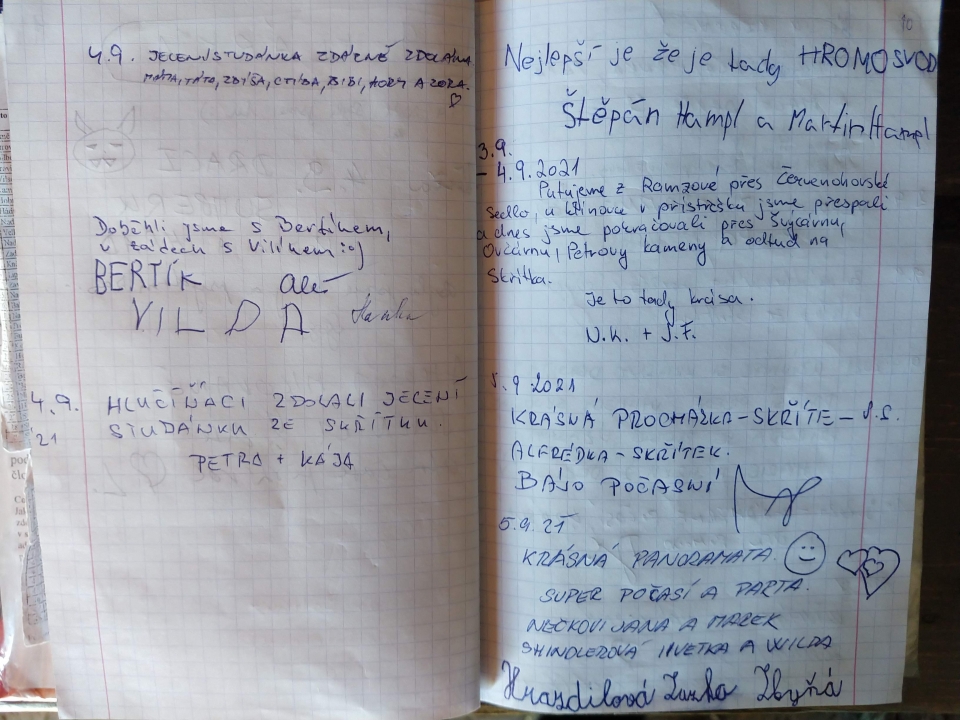 4.9. JELENÍ STUDÁNKA ZDÁRNĚ ZDOLÁNA
MÁMA, TÁTA, ZDÍŠA, CTIBA, BIBI, HORY A ZORA.
Doběhli jsme s Bertíkem,
v zádech s Vilíkem :o)
BERTÍK Aleš
VILDA Hanka
4.9. HLUČÍŇÁCI ZDOLALI JELENÍ
'21 STUDÁNKU ZE SKŘÍTKU.
PETRA + KÁJA
10
Nejlepší je že je tady HROMOSVOD
Štěpán Hampl a Martin Hampl
3.9.
- 4.9.2021
Putujeme z Ramzové přes Červenohorské
sedlo, u Klínovce v přístřešku jsme přespali
a dnes jsme pokračovali přes Švýcárnu,
Ovčárnu, Petrovy kameny a odtud na
Skřítka.
Je to tady krása.
N.K. + J.F.
5.9 2021
KRÁSNÁ PROCHÁZKA - SKŘÍTE - J.S.
ALFRÉDKA - SKŘÍTEK.
BÁJO POČASNÍ
5.9.21
KRÁSNÁ PANORAMATA.
SUPER POČASÍ A PARTA.
NEČKOVI JANA A MAREK
SHINDLEROVÁ IVETKA A WILDA
Hrazdilová Zuzka Zbyňá